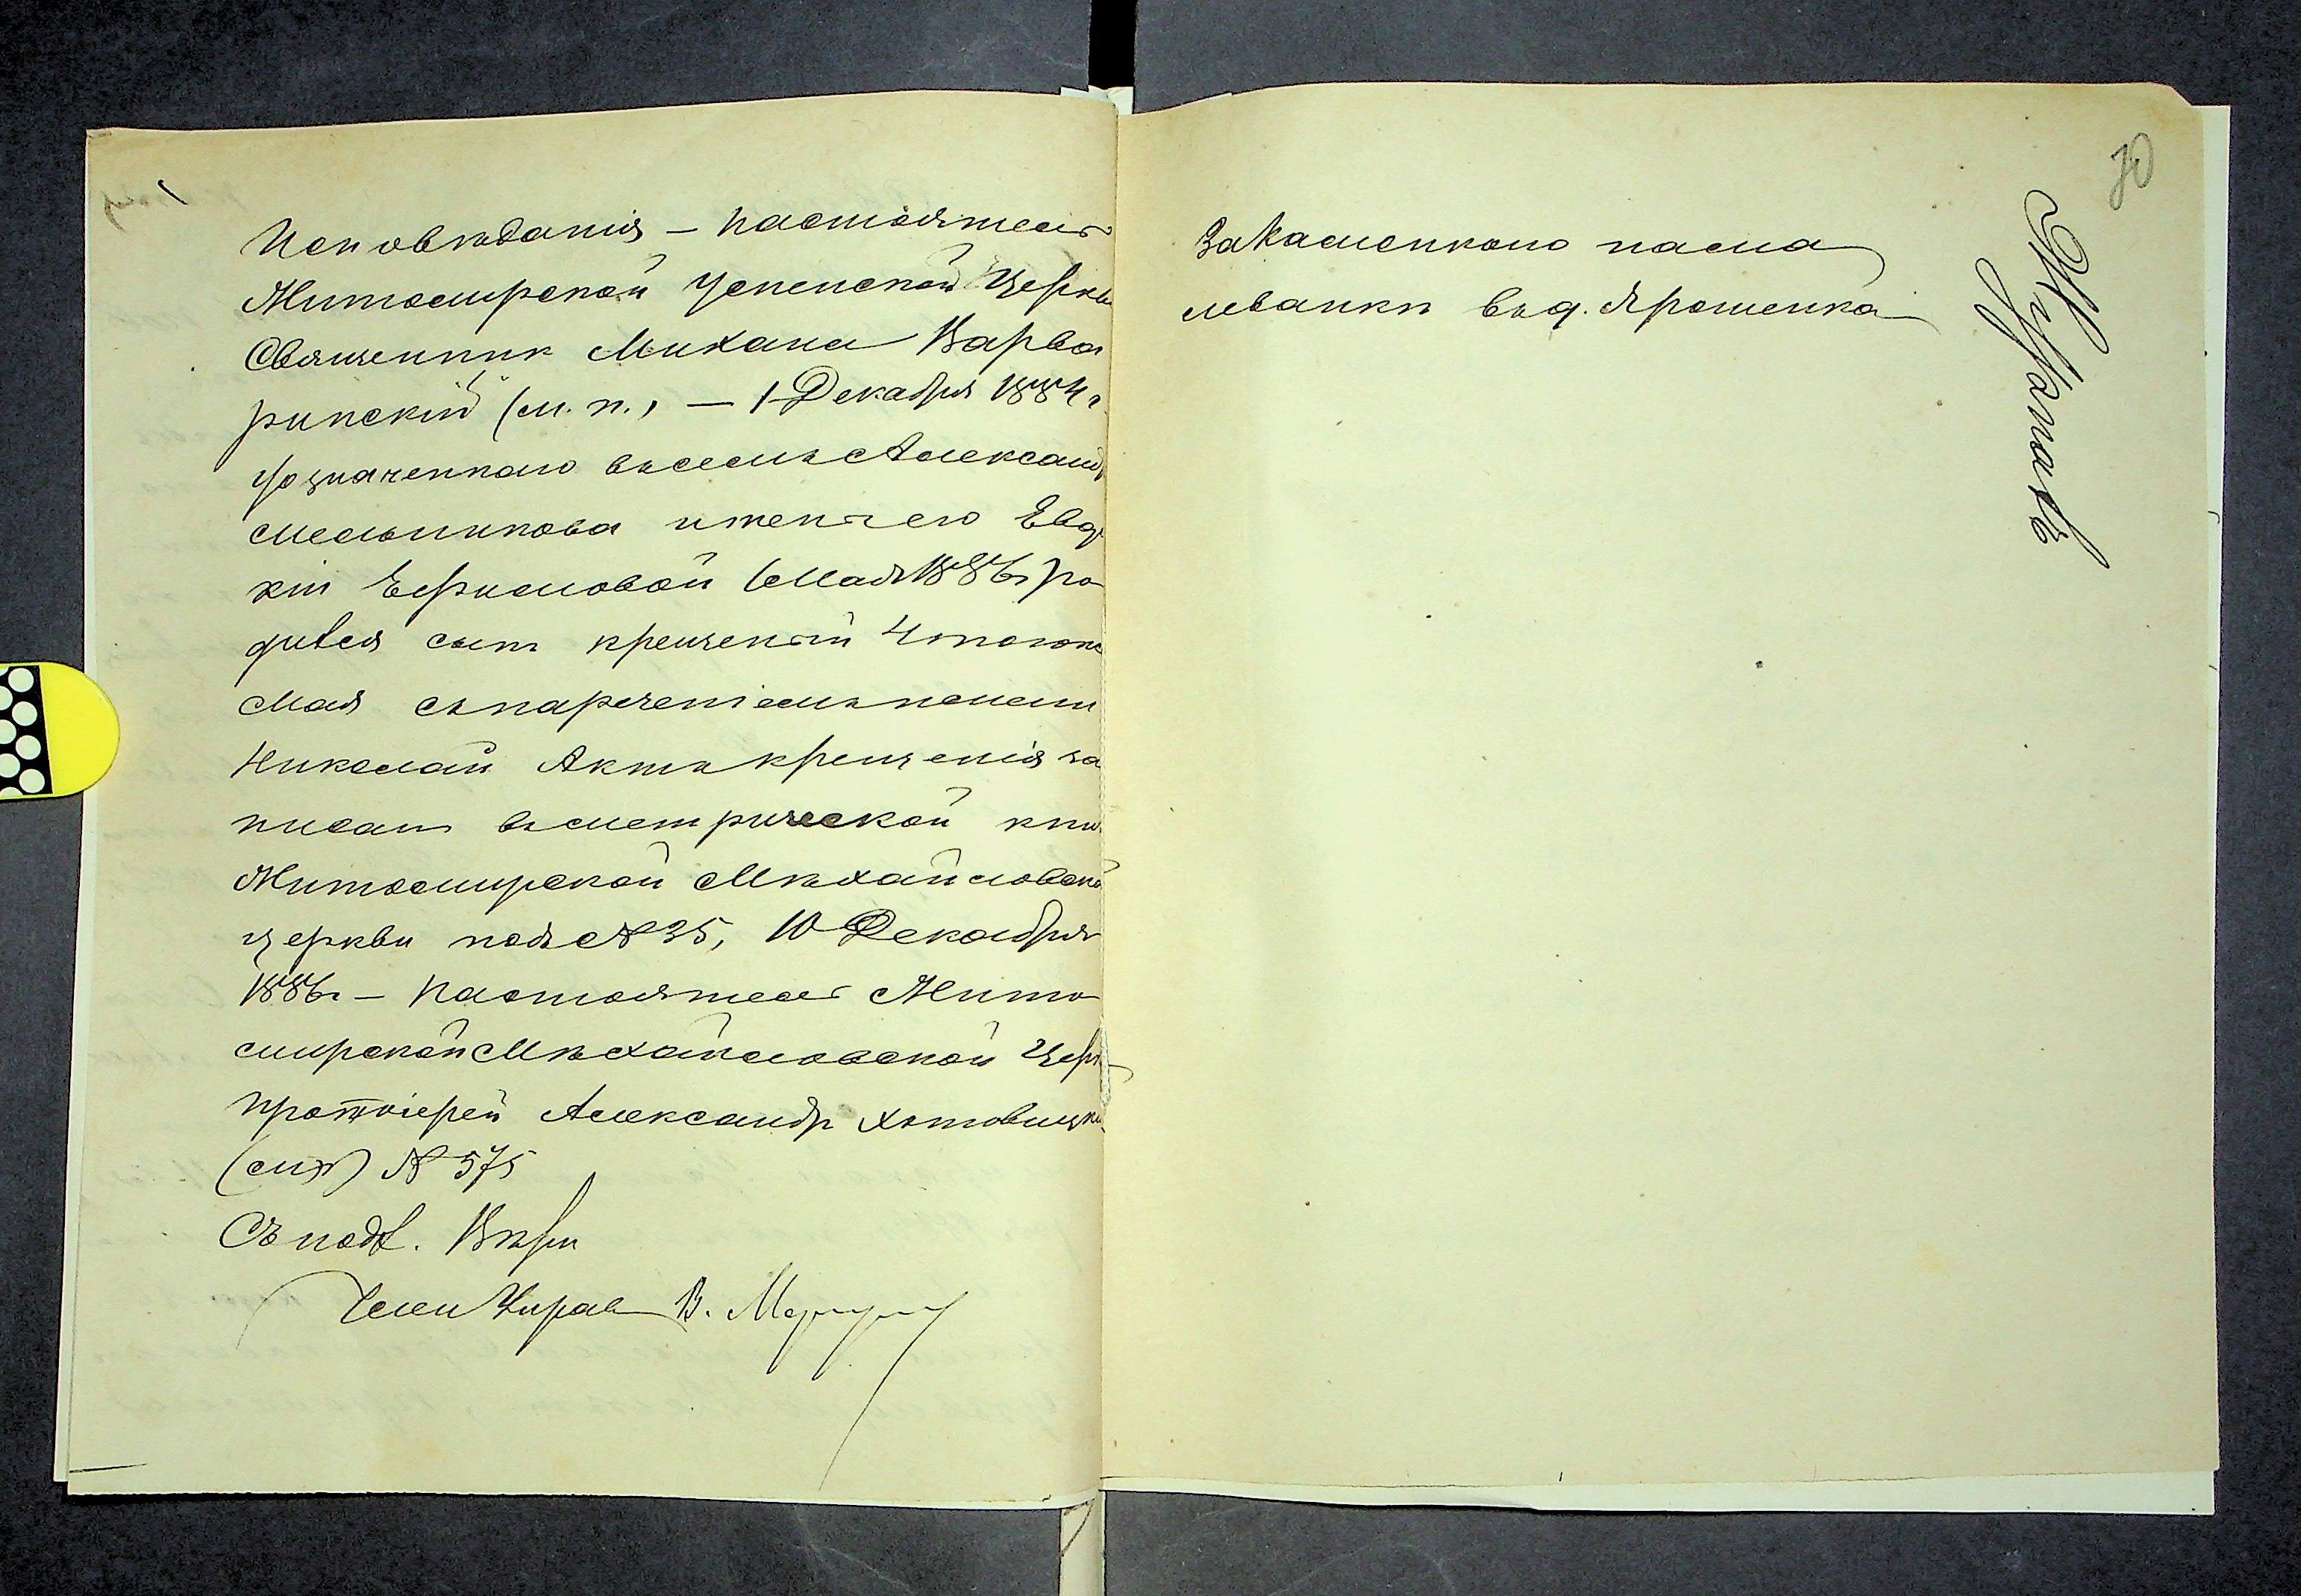 Исповѣданія – Настоятель
Житомирской Успенской Церкви
Священникъ Михаилъ Варва
ринскій (м. п.) — 1 Декабря 1884 г
Уозначеннаго въсемъ Александр
Мельникова иженыего Евдо
кіи Ефимовой 1 Мая 1886 г ро
дился сынъ крещеный 4 тогоже
Мая съ нареченіемъ имени
Николай Актъ крещенія за
писанъ въ метрической кни
Житомирской Михайловской
церкви подъ №35, 10 Декабря
1886 г – Настоятель Жито
мирской Михайловской Церк
протоіерей Александръ Хотовицкі
(мп) № 575
Съ подл. Вѣрно
Член Управ В.
За Каменного пана
Ярошенка
70